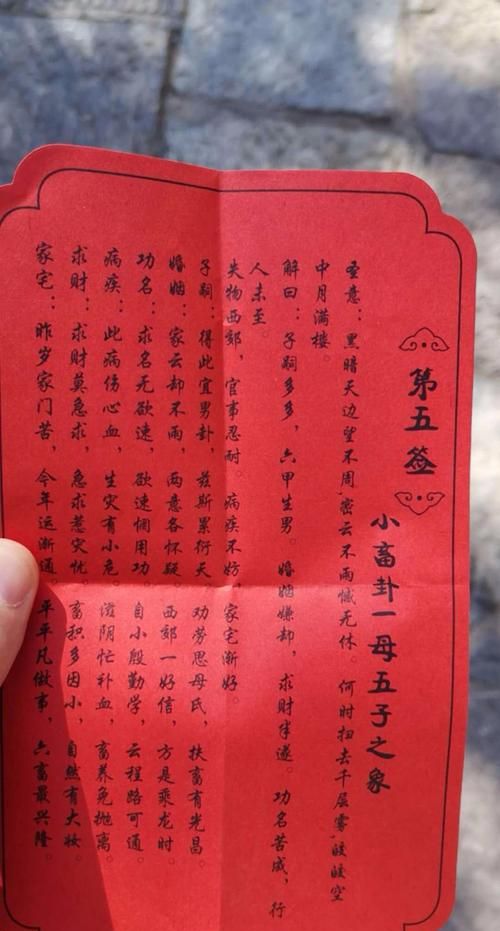 第五签
小畜卦一母五子之象
圣意：黑暗天边望不周，密云不雨憾无休。何时扫去千层雾，皎皎空
中月满楼。
解曰：子嗣多多，六甲生男。婚姻嫌却，求财半遂。功名苦成，行
人未至。
失物西郊，官事忍耐。病疾不妨，家宅渐好。
子嗣：得此宜男卦，兹斯累衍天，劝劳思母氏，扶畜有光昌。
婚姻：家云却不雨，两意各怀疑，西郊一好信，方是乘龙时。
功名：求名无欲速，欲速惘用功，自小殷勤学，云程路可通。
病疾：此病伤心血，生灾有小危。滋阴忙补血，畜养免抛离。
求财：求财莫急求，急求惹灾忧，畜积多因小，自然有大妆。
家宅：昨岁家门苦，今年运渐通，平平凡做事，六畜最兴隆。